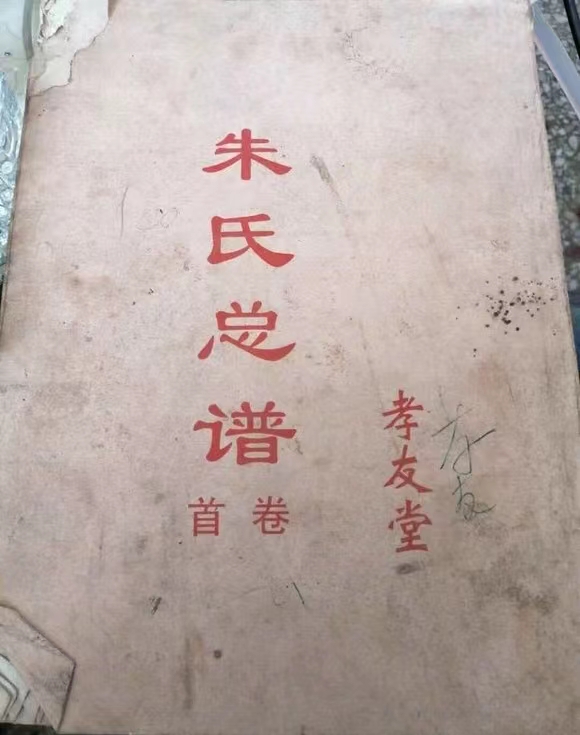 朱氏总谱
首卷
孝友堂
孝友